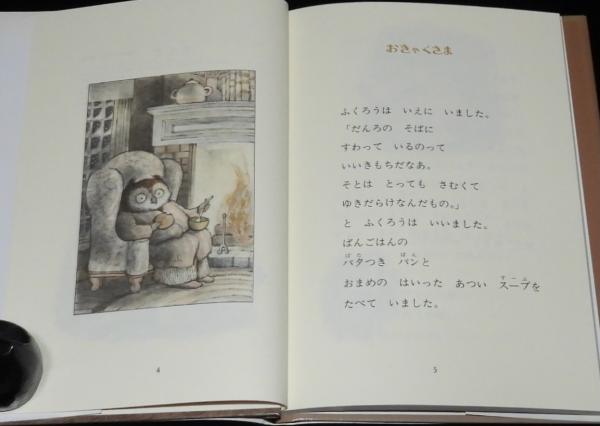 おきゃくさま
ふくろうは いえに いました。
「だんろの そばに
すわって いるのって
いいきもちだなあ。
そとは とっても さむくて
ゆきだらけなんだもの。」
と ふくろうは いいました。
ばんごはんの
バタつき パンと
おまめの はいった あつい スープを
たべて いました。
4
5